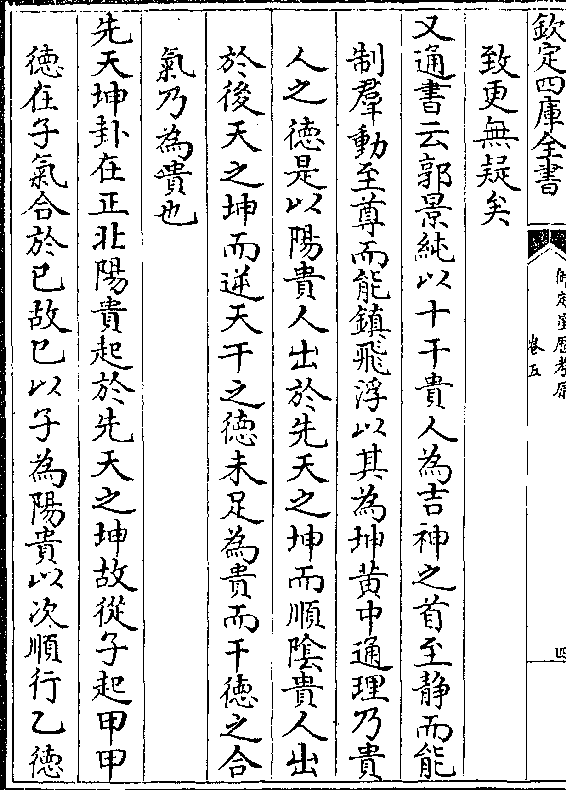 欽定四庫全書
御定星歷考原
卷五
四
致更無疑矣
又通書云郭景純以十干貴人為吉神之首至静而能
制羣動至尊而能鎮飛浮以其為坤黄中通理乃貴
人之徳是以陽貴人出於先天之坤而順隂貴人出
於後天之坤而逆天干之徳未足為貴而干徳之合
氣乃為貴也
先天坤卦在正北陽貴起於先天之坤故從子起甲甲
徳在子氣合於巳故巳以子為陽貴以次順行乙徳